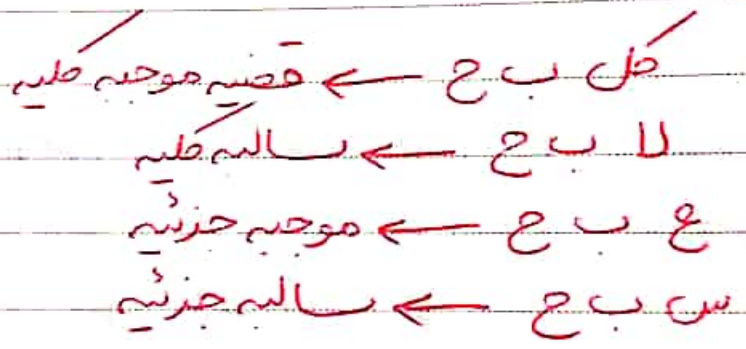 كل ب ح ← قضيه موجبه كليه
لا ب ح ← سالبه كليه
ع ب ح ← موجبه جزئيه
س ب ح ← سالبه جزئيه